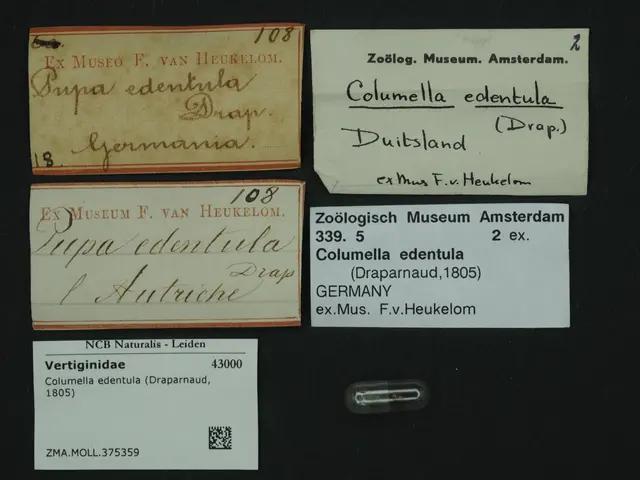 108
Ex Museo F. van Heukelom.
Pupa edentula
Drap.
Germania.
18.
2
Zoölog. Museum. Amsterdam.
Columella edentula
(Drap.)
Duitsland
ex Mus F.v. Heukelom
108
Ex Museum F. van Heukelom.
Pupa edentula
Drap
l'Autriche
Zoölogisch Museum Amsterdam
339. 5 2 ex.
Columella edentula
(Draparnaud,1805)
GERMANY
ex.Mus. F.v.Heukelom
NCB Naturalis - Leiden
Vertiginidae 43000
Columella edentula (Draparnaud,
1805)
ZMA.MOLL.375359